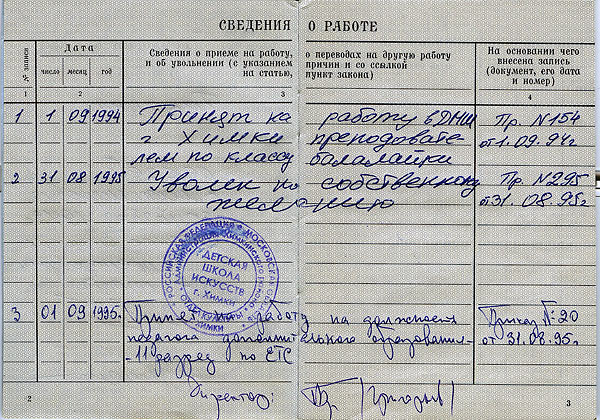 СВЕДЕНИЯ О РАБОТЕ
№ записи
Дата
число месяц год
Сведения о приеме на работу, о переводах на другую работу
и об увольнении (с указанием причин и со ссылкой
на статью, пункт закона)
На основании чего
внесена запись
(документ, его дата
и номер)
1 2 3 4
1 1 09 1994 Принят на работу в ДШИ Пр. N154
г Химки преподавате- от 1.09.94г.
лем по классу балалайки
2 31 08 1995 Уволен по собственному Пр. N295
желанию от 31.08.95г
РОССИЙСКАЯ ФЕДЕРАЦИЯ МОСКОВСКАЯ
АДМИНИСТРАЦИЯ ХИМКИНСКОГО
ОТДЕЛ КУЛЬТУРЫ
ДЕТСКАЯ
ШКОЛА
ИСКУССТВ
г. Химки
ХИМКИ
3 01 09 1995. на работу на должность Приказ № 20
педагога дополнительного образования- от 31.08.95г.
-11 разряд по ЕТС
Директор:
2 3